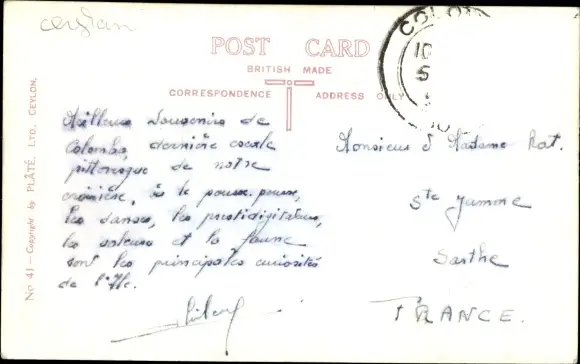 ceylan
POST CARD
BRITISH MADE
CORRESPONDENCE ADDRESS ONLY
No 41 — Copyright by PLÂTÉ, LTD., CEYLON.
COLOM
10
Meilleurs Souvenirs de
Colombo, dernière escale
pittoresque de notre
croisière, où le pousse-pousse,
les danses, les prestidigitateurs,
les et la faune
sont les principales curiosités
de l'Ile.
Monsieur & Madame Rat.
Ste Jamme
Sarthe
FRANCE.